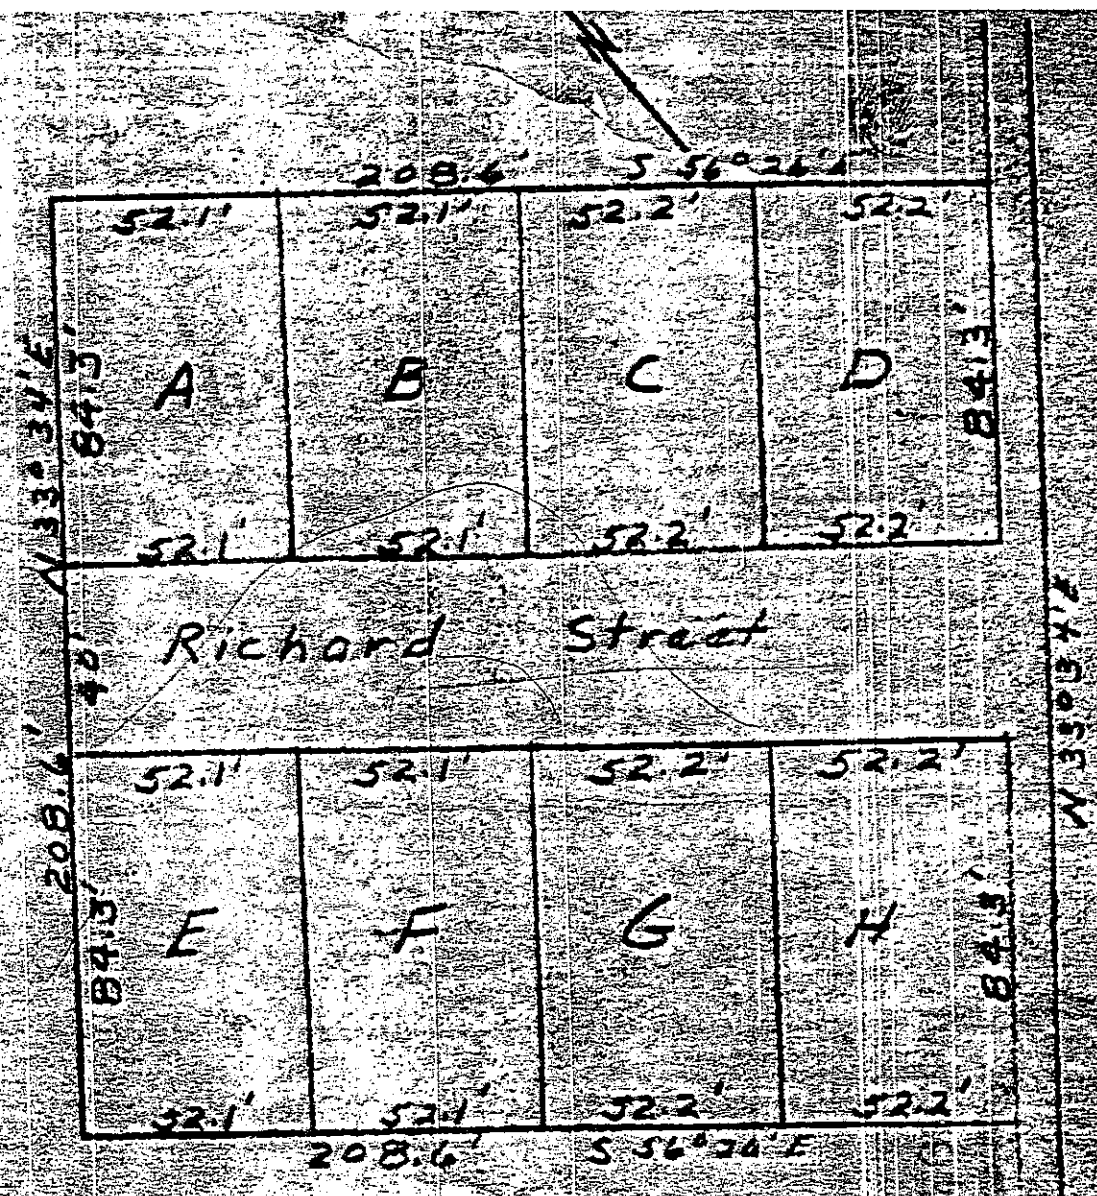 N
208.6' S 56° 26' E
52.1' 52.1' 52.2' 52.2'
N 33° 34' E
84.3'
A B C D
84.3'
52.1' 52.1' 52.2' 52.2'
40'
Richard Street
N 33° 34' E
208.6'
52.1' 52.1' 52.2' 52.2'
84.3'
E F G H
84.3'
52.1' 52.1' 52.2' 52.2'
208.6' S 56° 26' E